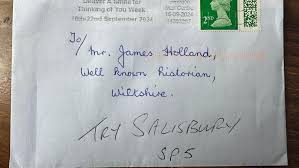 Deliver A Smile for
Thinking of You Week
16th-22nd September 2024
16-09-2024
2ND
To/
Mr. James Holland,
Well Known Historian,
Wiltshire.
TRY SALISBURY
SP5